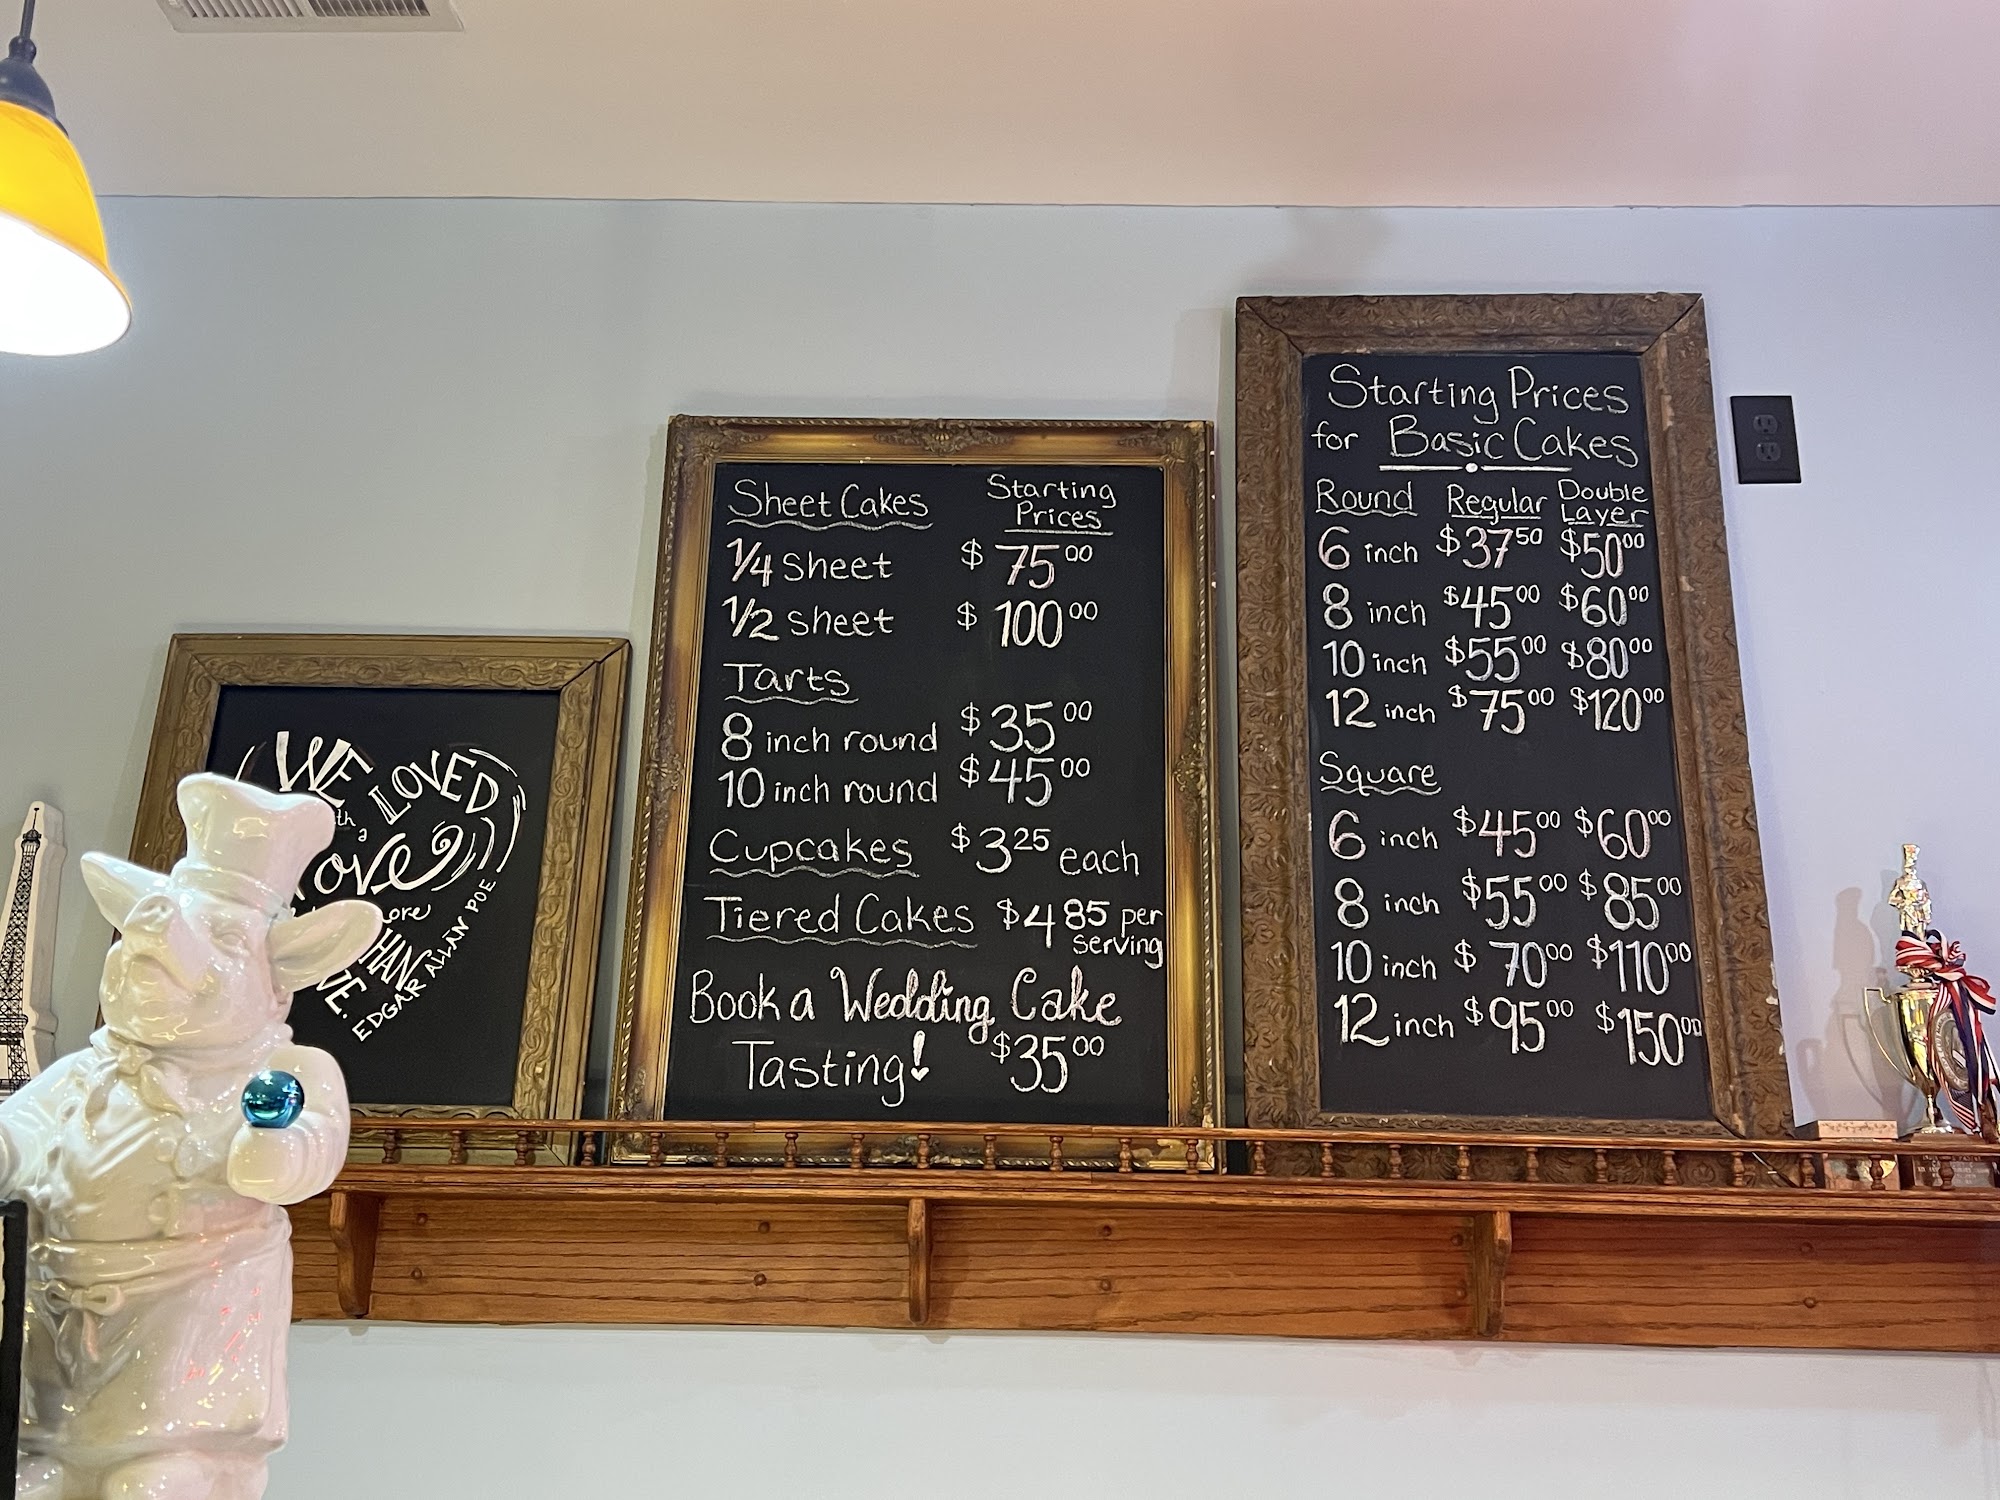 WE
LOVED
th a
Love
ore
HAN
VE.
EDGAR ALLAN POE
Sheet Cakes Starting Prices
1/4 sheet $75.00
1/2 sheet $100.00
Tarts
8 inch round $35.00
10 inch round $45.00
Cupcakes $3.25 each
Tiered Cakes $4.85 per serving
Book a Wedding Cake
Tasting! $35.00
Starting Prices
for Basic Cakes
Round Regular Double Layer
6 inch $37.50 $50.00
8 inch $45.00 $60.00
10 inch $55.00 $80.00
12 inch $75.00 $120.00
Square
6 inch $45.00 $60.00
8 inch $55.00 $85.00
10 inch $70.00 $110.00
12 inch $95.00 $150.00